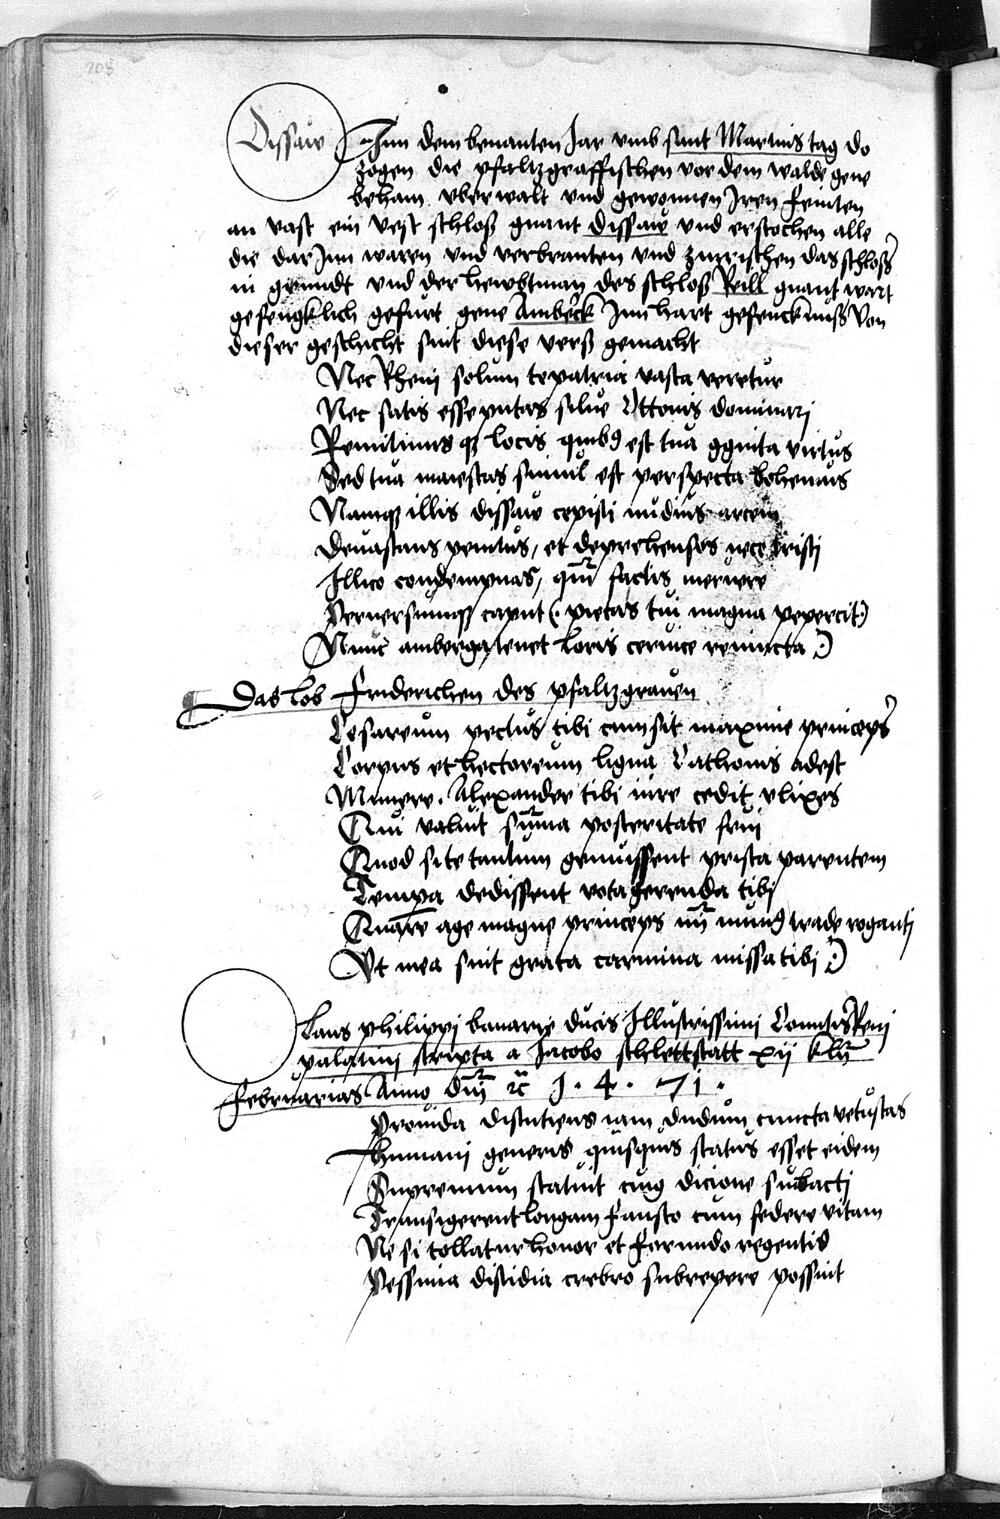 708
Dissaw
Inn dem benanten Jar vmb sant Martins tag do
zogen die pfaltzgraffischen vor dem walde gene
beham vberwalt vnd gewonnen Iren feinten
an vast ein vest schloß gnant dissaw vnd erstochen alle
die dar Inn waren vnd verbranten vnd zurischen das schloß
in grundt vnd der hewbtman des schloß Reill gnant wart
gefengklich gefurt gene Amberk Inn hart gefencknuß Von
dieser geschicht sint diese verß gemacht
Nec Rheni solum te patria vasta veretur
Nec satis esse putas silue Ottonis dominari
Remitimus qz locis quibus est tua ggnita virtus
Sed tua maiestas simul est perspecta bohemis
Namqz illis dissaw cepisti nudius arcem
Deuastans penitus, et deprehensos nece tristi
Illico condempnas, qm̄ factis meruere
Peruersumqz caput (: pietas tui magna pepercit:)
Nunc amberga tenet loris ceruice reuincta :)
Das lob Friderichen des pfaltzgrauen
Cesareum pectus tibi cum sit maxime princeps
Corpus et hectoreum ligua Cathonis adest
Munere. Alexander tibi iure cedit vlixes
Qui valuit su̅ma posteritate frui
Quod si te tantum genuissent prista parentem
Tempa dedissent vota gerenda tibi
Quare age magne princeps nu̅ munus trade roganti
Vt mea sint grata carmina missa tibi :)
Laus philippi bauarie ducis Illustrissimi Comitis Reni
palatini scripta a Jacobo schlettstatt xij kln̄
Februarias Anno dn̄i rc̄ 1 . 4 . 71 .
Prouida discutiens iam dudum cuncta vetustas
humani generis quisquis status esset eidem
Supremum statuit cuius dicione subacti
Transigerent longam fausto cum federe vitam
Ne si tollatur honor et formido regentis
Pessima disidia crebro subrepere possint